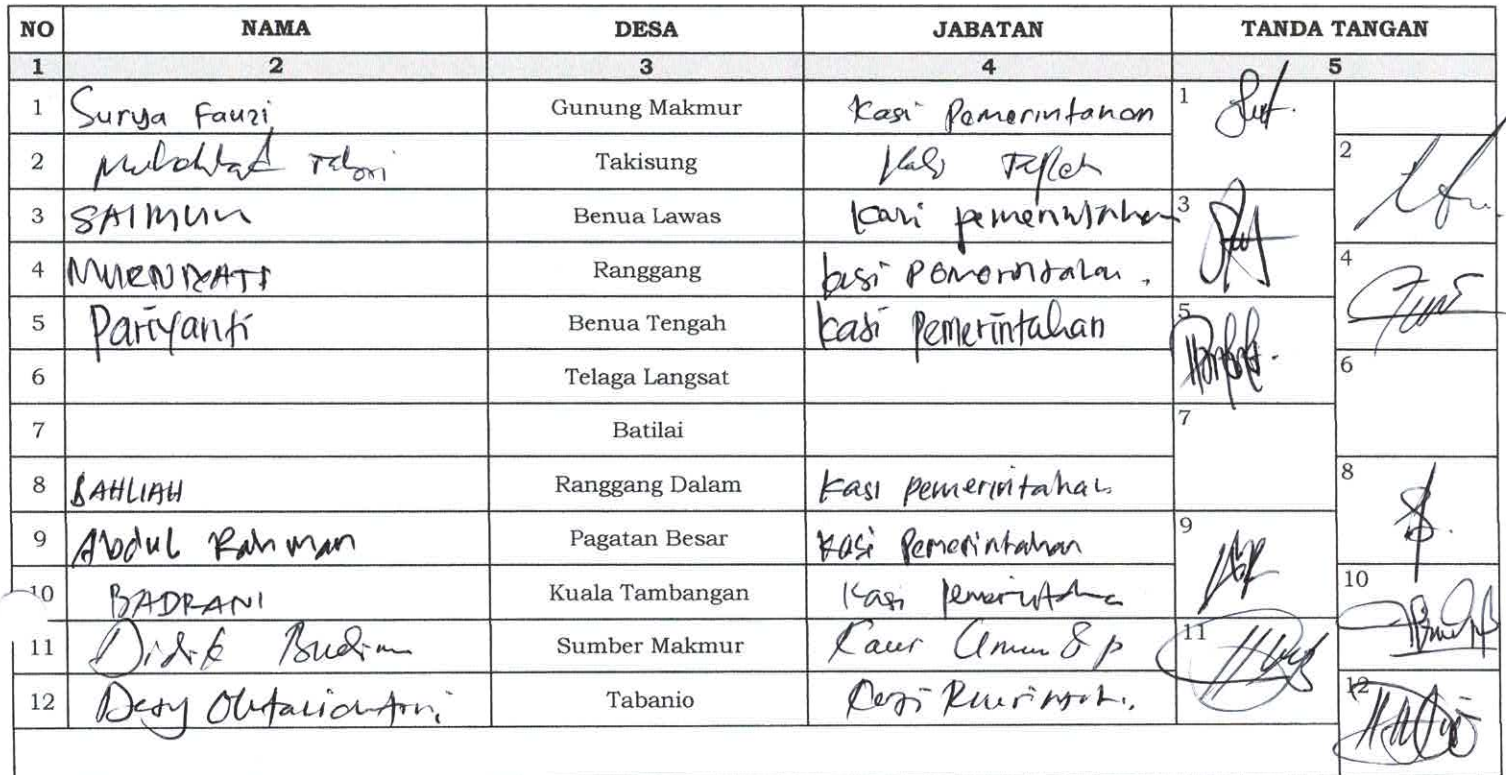 NO NAMA DESA JABATAN TANDA TANGAN
1 2 3 4 5
1 Surya Fauzi Gunung Makmur Kasi Pemerintahan 1
2 Takisung 2
3 SAIMUN Benua Lawas Kasi pemerintahan 3
4 MURNIYATI Ranggang kasi Pemerintahan . 4
5 Pariyanti Benua Tengah kasi Pemerintahan 5
6 Telaga Langsat 6
7 Batilai 7
8 BAHLIAH Ranggang Dalam kasi pemerintahan 8
9 Abdul Rahman Pagatan Besar kasi Pemerintahan 9
10 BADRANI Kuala Tambangan Kasi 10
11 Didik Sumber Makmur Kaur Umum & p 11
12 Desy Tabanio 12